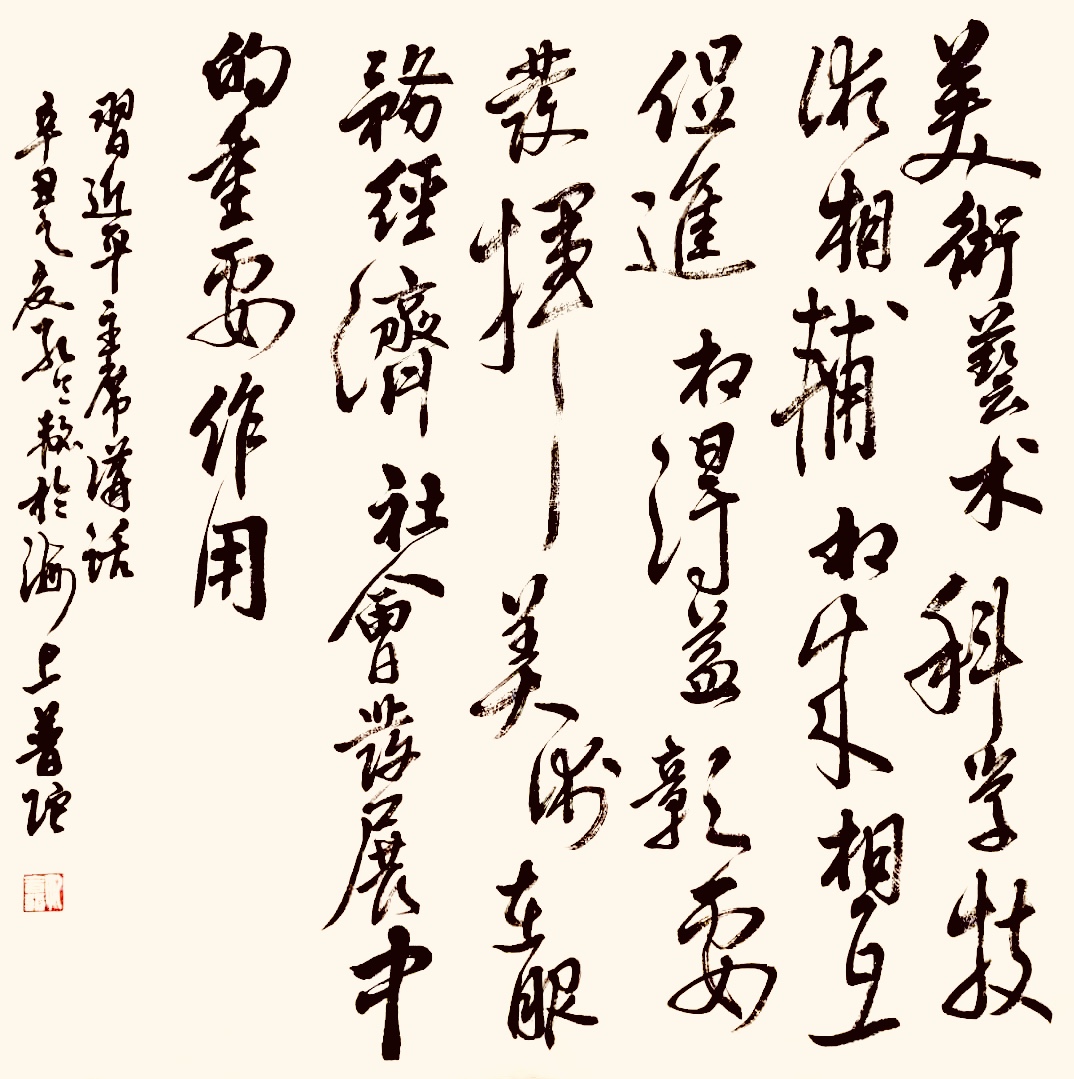 美術藝术科学技
術相輔相成相互
促進相得益彰要
發揮美術在服
務經濟社會發展中
的重要作用
習近平主席講話
辛丑之夏於海上普陀